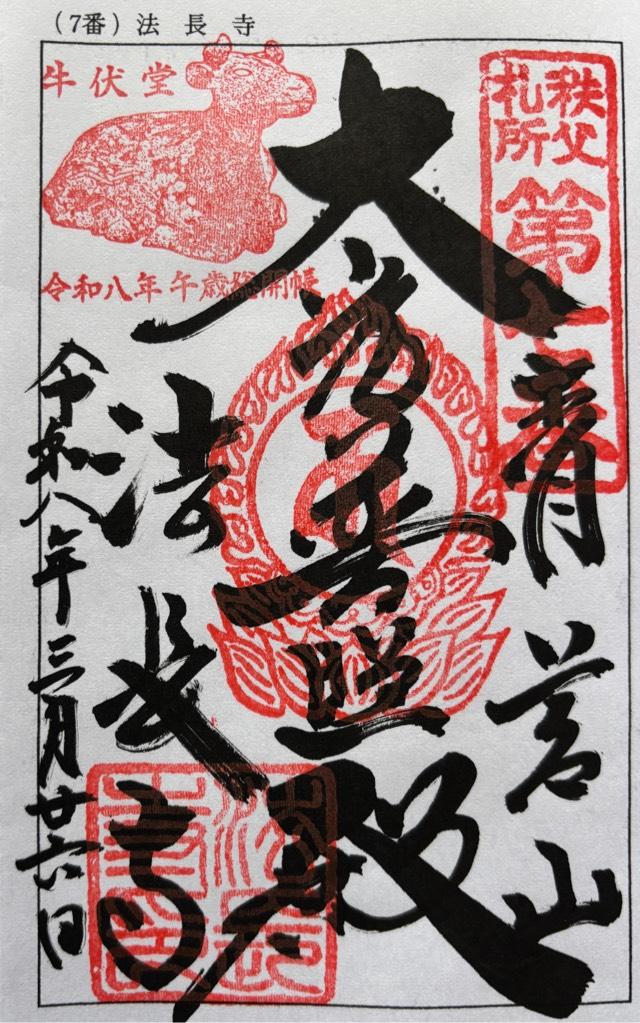 (7番) 法長寺
牛伏堂
令和八年 午歳総開帳
秩父
札所
第七番
青苔山
大光普照殿
法長寺
令和八年三月廿六日